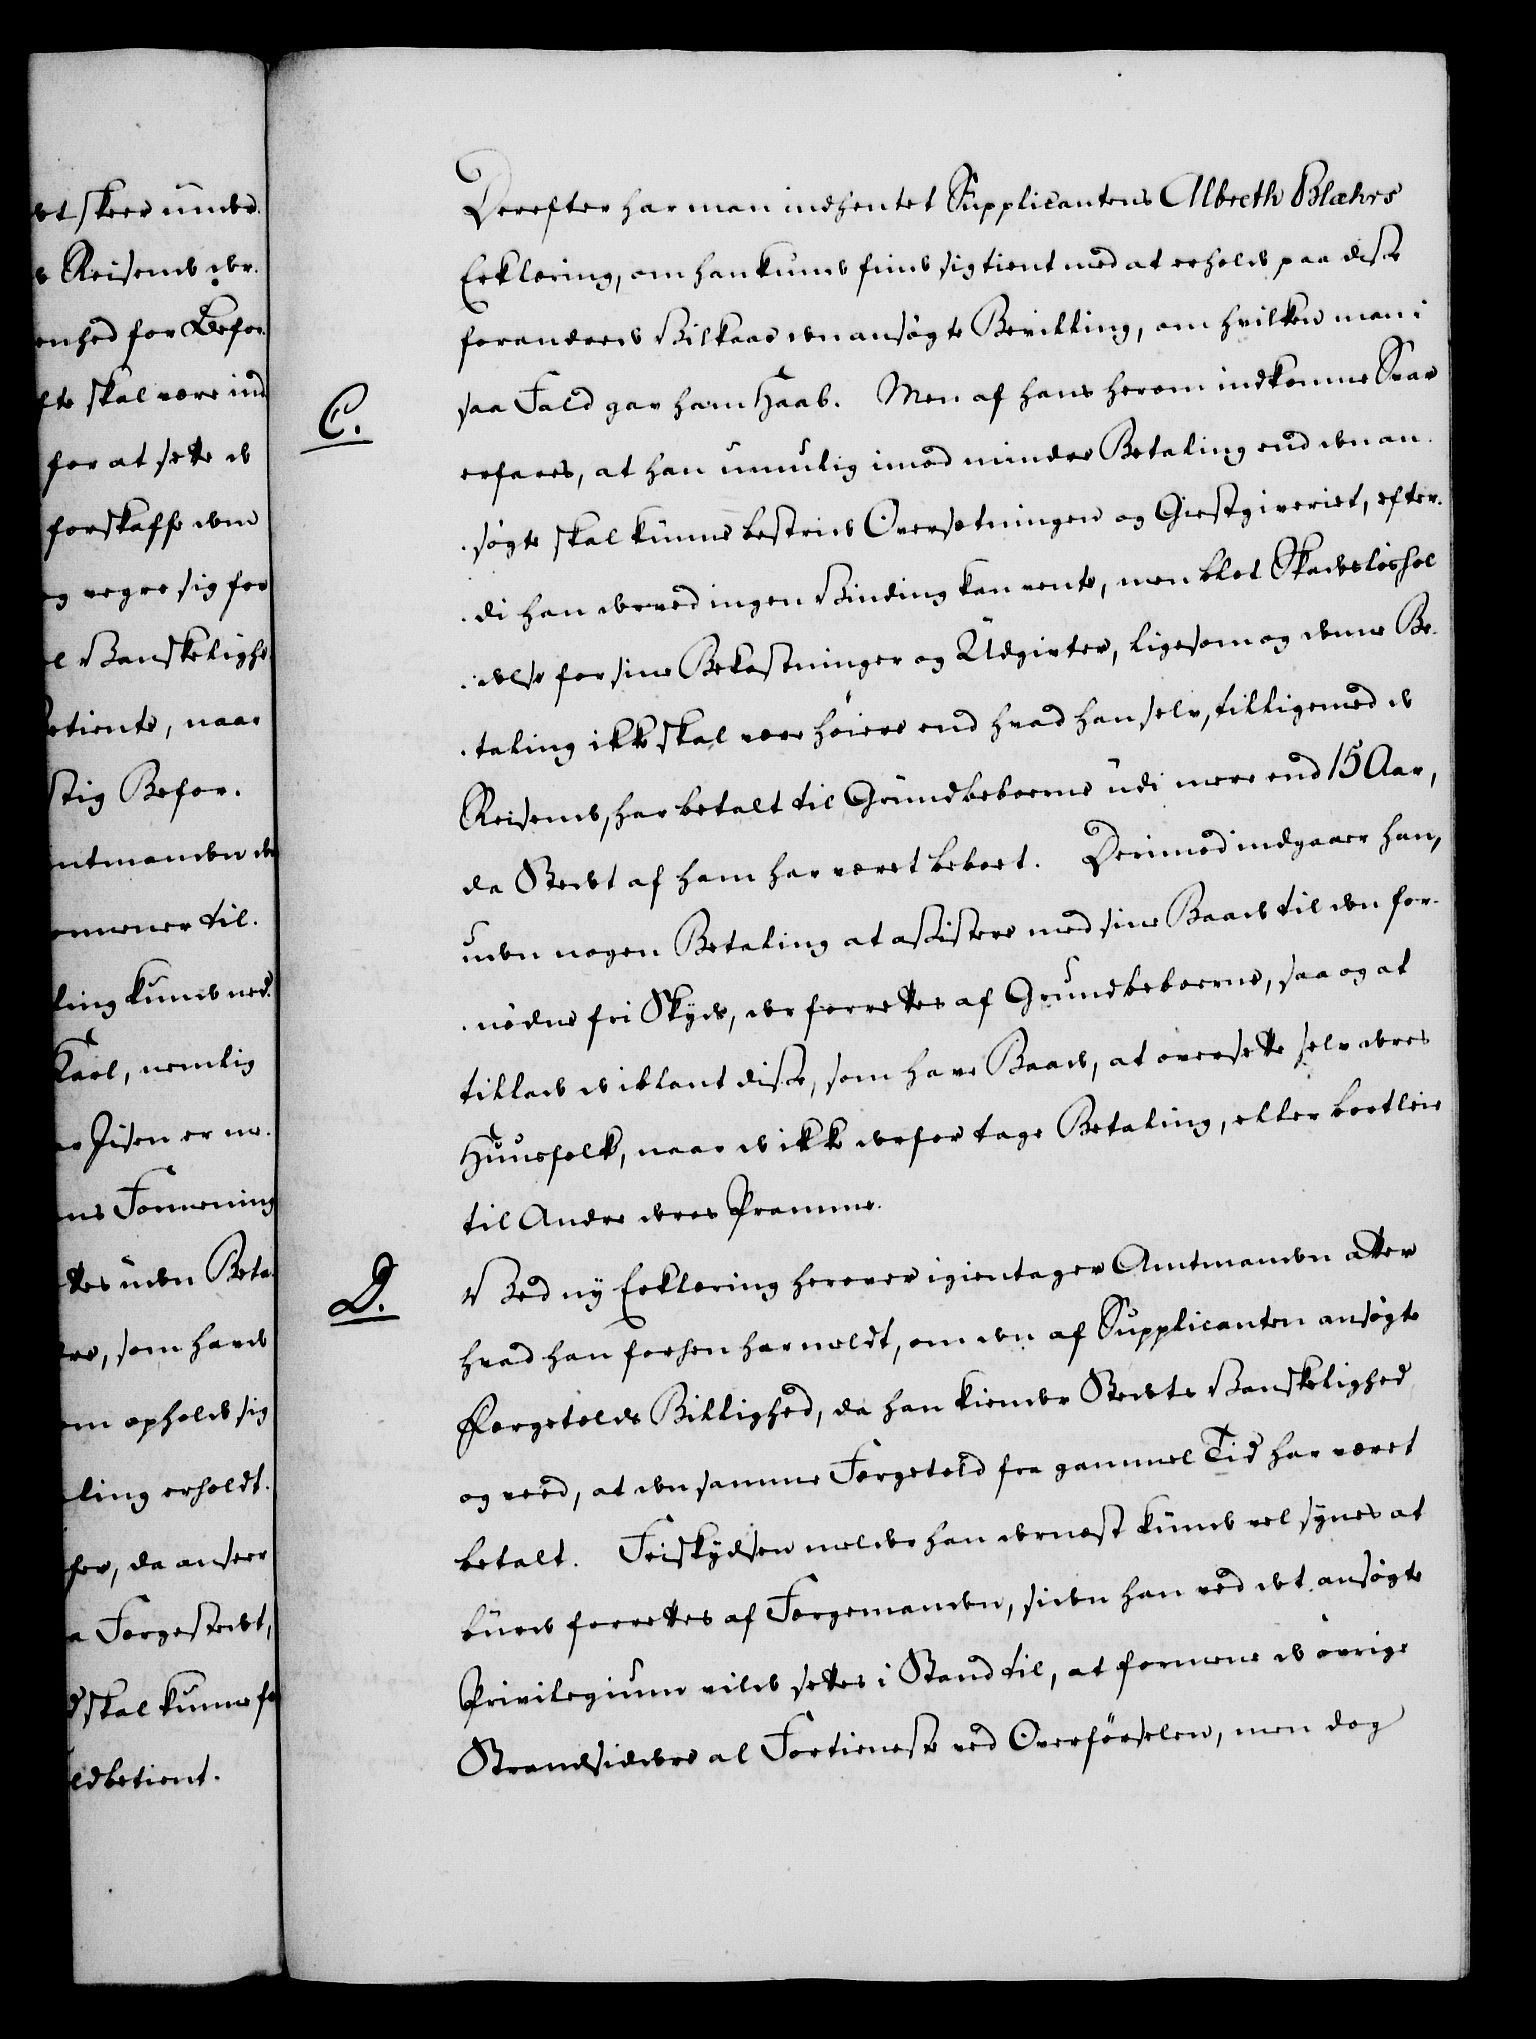 et skeer under-
e Reisende der-
enhed for Befor-
lte skal være ind
for at sette de
forskaffe dem
og vegre sig for
el Vanskelighe
betiente, naar
stig Befor-
mtmanden de
ormener til-
ling kunde ned-
Karl, nemlig
ar Jisen er ne-
ns Formening
ttes uden Beta-
re, som havde
om opholde sig
ling erholdt.
for, da anseer
a Færgestedet,
d skal kunne fo
ldbetient.
Derefter har man indhentet Supplicantens Albreth Blæhrs
Erklæring, om han kunde finde sig tient med at erholde paa disse
forandrede Vilkaar den ansøgte Bevilling, om hvilken man i
C.
saa Fald gav ham Haab. Men af hans herom indkomne Svar
erfares, at han umulig imod mindre Betaling end den an-
-søgte skal kunne bestride Oversætningen og Giestgiveriet, efter-
-di han derved ingen Vinding kan vente, men blot Skadesløshol
-delse for sine Bekostninger og Udgivter, ligesom og denne Be-
-taling ikke skal være høiere end hvad han selv, tilligemed de
Reisende, har betalt til Grundbeboerne udi mere end 15 Aar,
da Stedet af ham har været beboet. Derimod indgaaer han,
uden nogen Betaling at assistere med sine Baade til den for-
-nødne fri Skyds, der forrettes af Grundbeboerne, saa og at
tillade de iblant disse, som have Baade, at oversette selv deres
Huusfolk, naar de ikke derfor tage Betaling, eller bortleie
til Andre deres Pramme.
D.
Ved ny Erklæring herover igientager Amtmanden atter
hvad han forhen har meldt, om den af Supplicanten ansøgte
Færgetolds Billighed, da han kiender Stedets Vanskelighed
og veed, at den samme Færgetold fra gammel Tid har været
betalt. Friskydsen melder han dernæst kunde vel synes at
burde forrettes af Færgemanden, siden han ved det ansøgte
Privilegium vilde settes i Stand til, at formene de øvrige
Strandsiddere al Fortieneste ved Overførselen, men dog